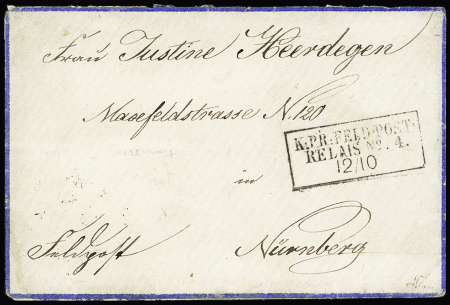 Frau Justine Heerdegen
Maxfeldstrasse N. 120
K.PR.FELD-POST-
RELAIS No. 4.
12/10
in
Nürnberg
Feldpost